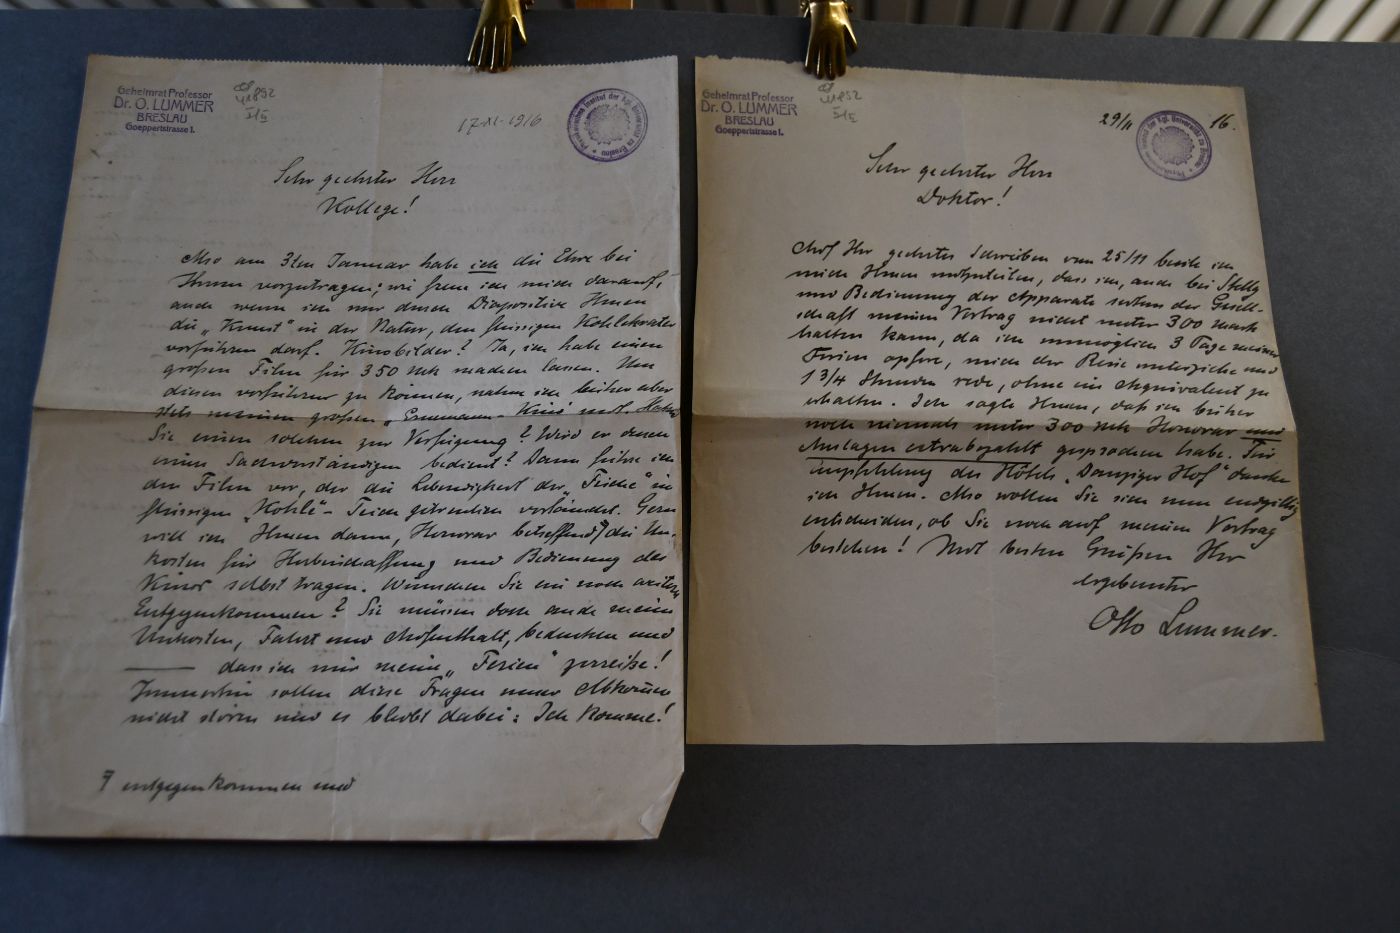 Geheimrat Professor
Dr. O. LUMMER
BRESLAU
Goeppertstrasse 1.
17. XI. 1916
Physikalisches Institut der Kgl. Universität zu Breslau
Sehr geehrter Herr
Kollege!
Also am 3ten Januar habe ich die Ehre bei
Ihnen vorzutragen; wie freue ich mich darauf,
auch wenn ich nur durch Diapositive Ihnen
die „Kunst" in der Natur, den flüssigen Kohlekrater
vorführen darf. Kinobilder? Ja, ich habe einen
großen Film für 350 Mk machen lassen. Um
diesen vorführen zu können, nahm ich bisher aber
stets meinen großen „Ernemann-Kino" mit. Haben
Sie einen solchen zur Verfügung? Wird er durch
einen Sachverständigen bedient? Dann führe ich
den Film vor, der die Lebendigkeit der „Fische" im
flüssigen „Kohle"-Teich getreulich verkündet. Gern
will ich Ihnen dann, Honorar betreffend, die Un-
kosten für Herbeischaffung und Bedienung des
Kinos selbst tragen. Wünschen Sie ein noch weiteres
Entgegenkommen? Sie müssen doch auch meine
Unkosten, Fahrt und Aufenthalt, bedenken und
— dass ich mir meine „Ferien" zerreiße!
Immerhin sollen diese Fragen unser Abkommen
nicht stören und es bleibt dabei: Ich komme!
entgegenkommen und
Geheimrat Professor
Dr. O. LUMMER
BRESLAU
Goeppertstrasse 1.
29/11 16.
Physikalisches Institut der Kgl. Universität zu Breslau
Sehr geehrter Herr
Doktor!
Auf Ihr geehrtes Schreiben vom 25/11 beeile ich
mich Ihnen mitzuteilen, dass ich, auch bei Stellg
und Bedienung der Apparate seitens der Gesell-
schaft meinen Vortrag nicht unter 300 Mark
halten kann, da ich unmöglich 3 Tage meiner
Ferien opfere, mich der Reise unterziehe und
1 3/4 Stunden rede, ohne ein Aequivalent zu
erhalten. Ich sagte Ihnen, daß ich bisher
noch niemals unter 300 Mk Honorar und
Auslagen extrabezahlt gesprochen habe. Für
Empfehlung des Hôtels „Danziger Hof" danke
ich Ihnen. Also wollen Sie sich nun endgiltig
entscheiden, ob Sie noch auf meinen Vortrag
bestehen! Mit besten Grüßen Ihr
ergebenster
Otto Lummer.